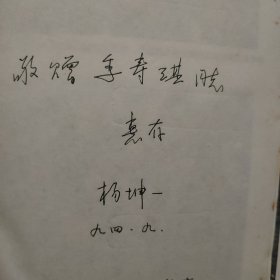 敬赠 季寿琪 同志
惠存
杨坤一
九四·九.